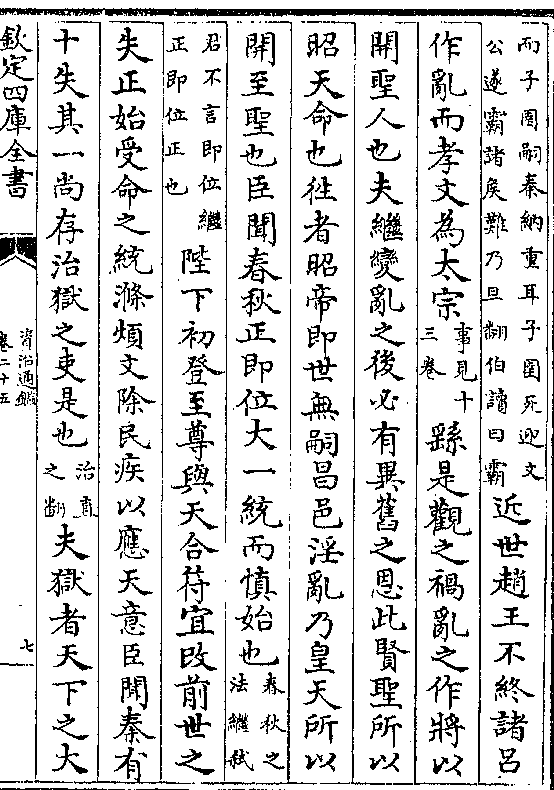 而子圉嗣秦納重耳子圉死迎文
公遂霸諸侯難乃旦翻伯讀曰霸
近世趙王不終諸呂
作亂而孝文為太宗
事見十
三卷
繇是觀之禍亂之作將以
開聖人也夫繼變亂之後必有異舊之恩此賢聖所以
昭天命也往者昭帝即世無嗣昌邑淫亂乃皇天所以
開至聖也臣聞春秋正即位大一統而慎始也
春秋之
法繼弑
君不言即位繼
正即位正也
陛下初登至尊與天合符宜改前世之
失正始受命之統滌煩文除民疾以應天意臣聞秦有
十失其一尚存治獄之吏是也
治直
之翻
夫獄者天下之大
欽定四庫全書
資治通鑑
卷二十五
七